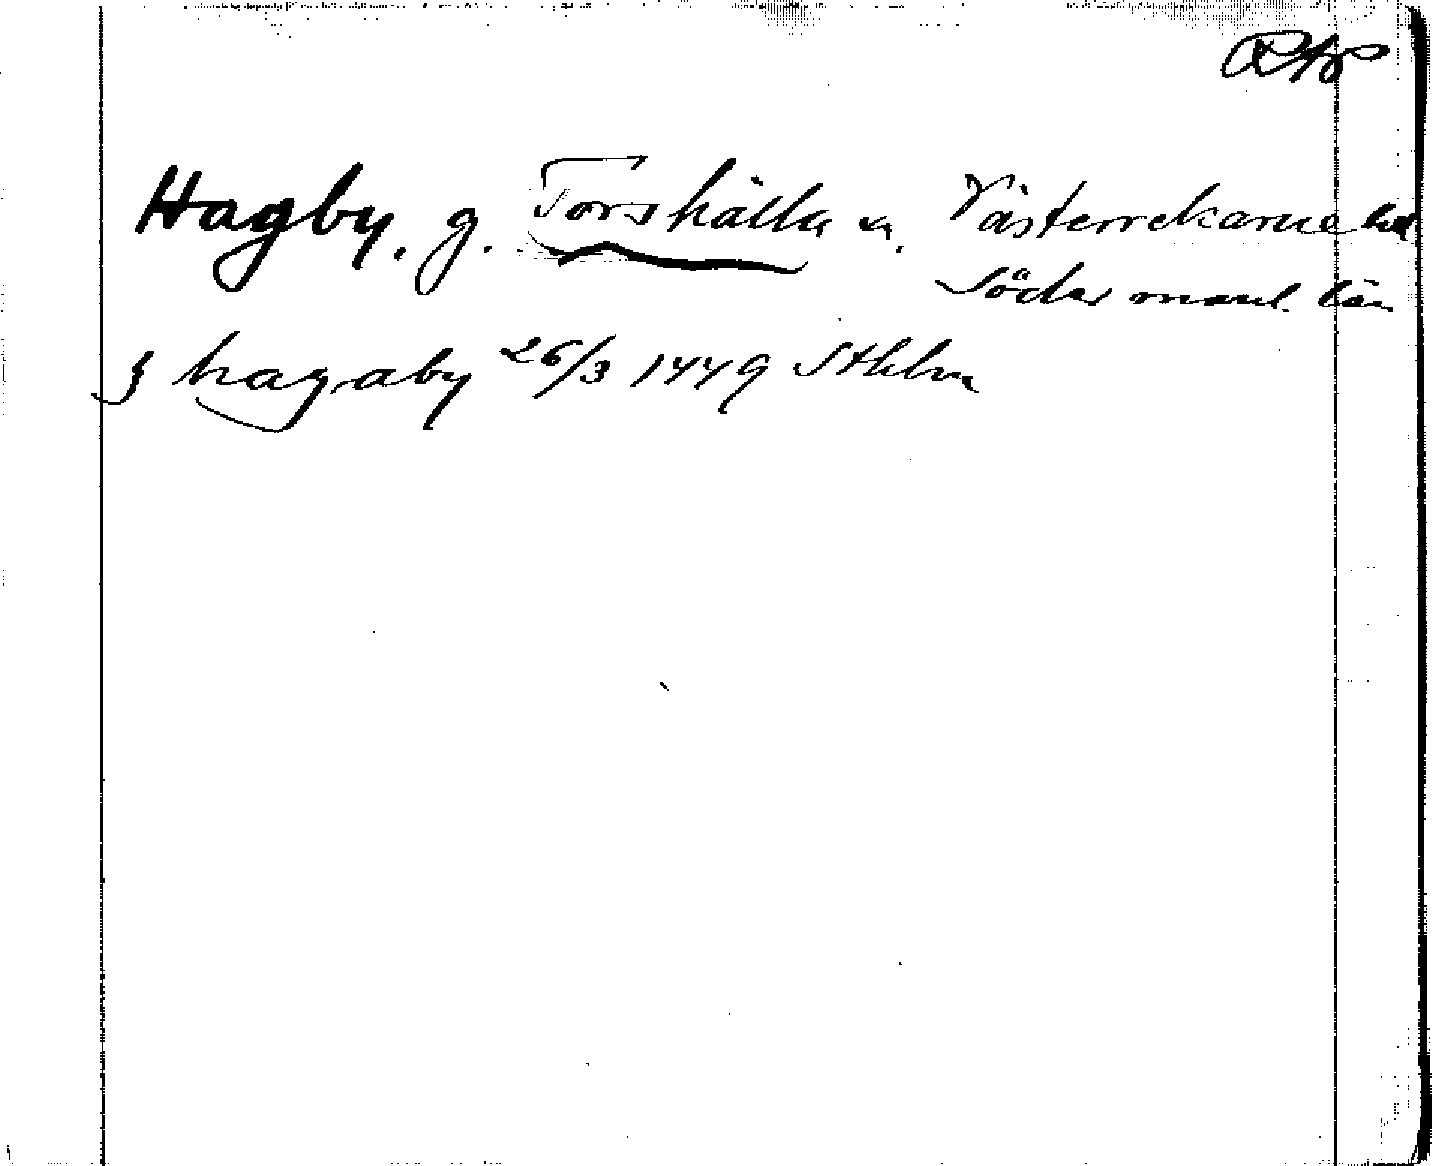 RAp
Hagby, g. Torshälla sn. Västerrekarne hd
Södermanl. län
j hagaby 26/3 1449 Sthlm